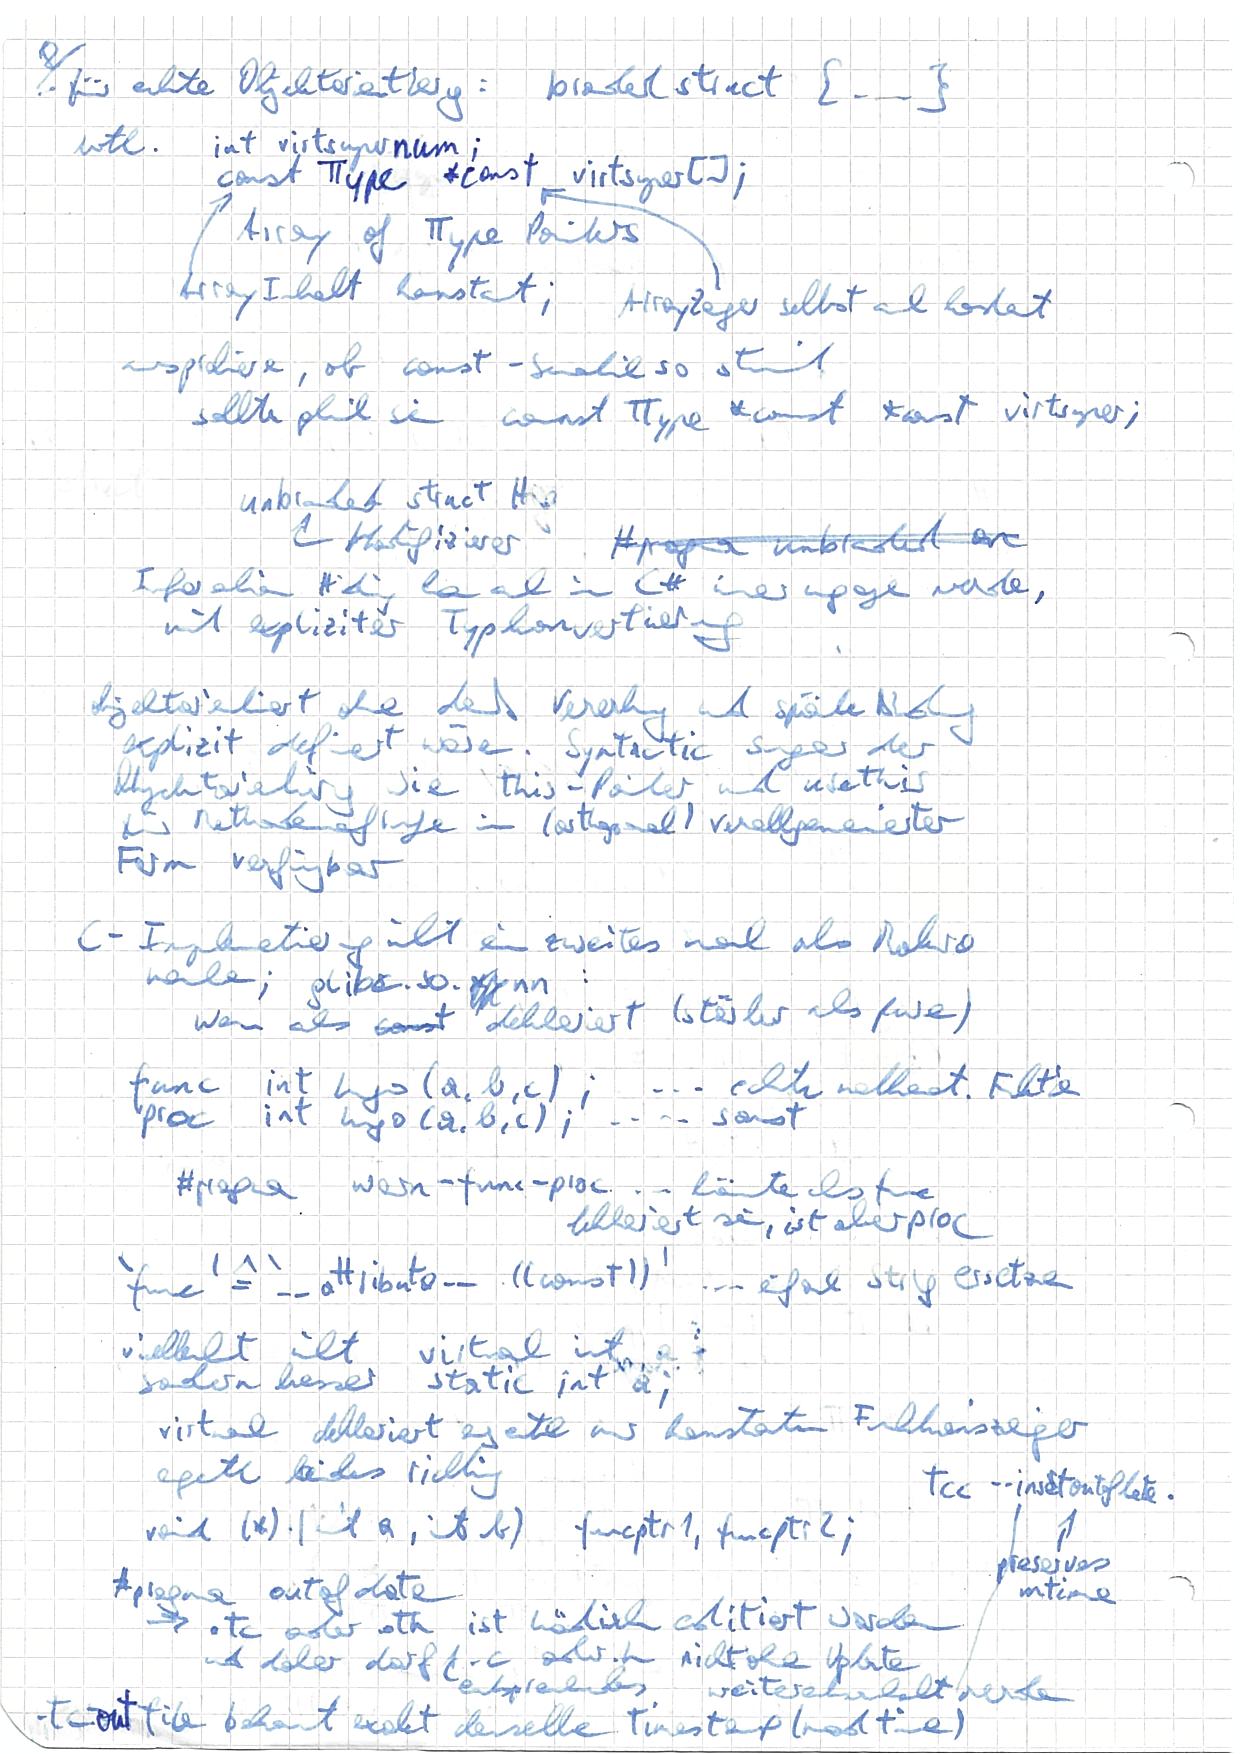 für echte Objektorientierung: branded struct { _ __ }
int virtsupernum;
const TType *const virtsuper[];
Array of TType Pointers
ArrayInhalt konstant; ArrayZeiger selbst auch konstant
ausprobieren, ob const - so stimmt
sollte gleich sein const TType *const *const virtsuper;
unbranded struct
Modifizierer #pragma unbranded
in C# immer werden,
mit expliziter Typkonvertierung
objektorientiert ohne dass Vererbung und späte Bindung
explizit definiert wäre. Syntactic sugar der
Objektorientierung wie this-Pointer und usethis
für Methodenaufrufe in (orthogonal) verallgemeinerter
Form verfügbar
C - Implementierung nicht ein zweites mal als Makro
; glibc.so.nn :
wenn als const deklariert (stärker als pure)
func int hugo (a, b, c) ; --- echte mathemat. Funktion
proc int hugo (a, b, c) ; --- sonst
#pragma warn-func-proc ... könnte als func
deklariert sein, ist aber proc
`func' ≙ `__attribute__ ((const))' --- string ersetzen
vielleicht nicht virtual int a;
sondern besser static int a;
virtual deklariert eigentlich nur konstanten Funktionszeiger
eigentlich beides richtig
tcc --insetoutofdate.
void (*) (int a, int b) funcptr1, funcptr2;
preserves
mtime
#pragma outofdate
→ .tc oder .th ist händisch editiert worden
und daher darf .c oder .h nicht ohne Update
entsprechendes weiterentwickelt werden
-tc-out file bekommt exakt denselben Timestamp (mod time)